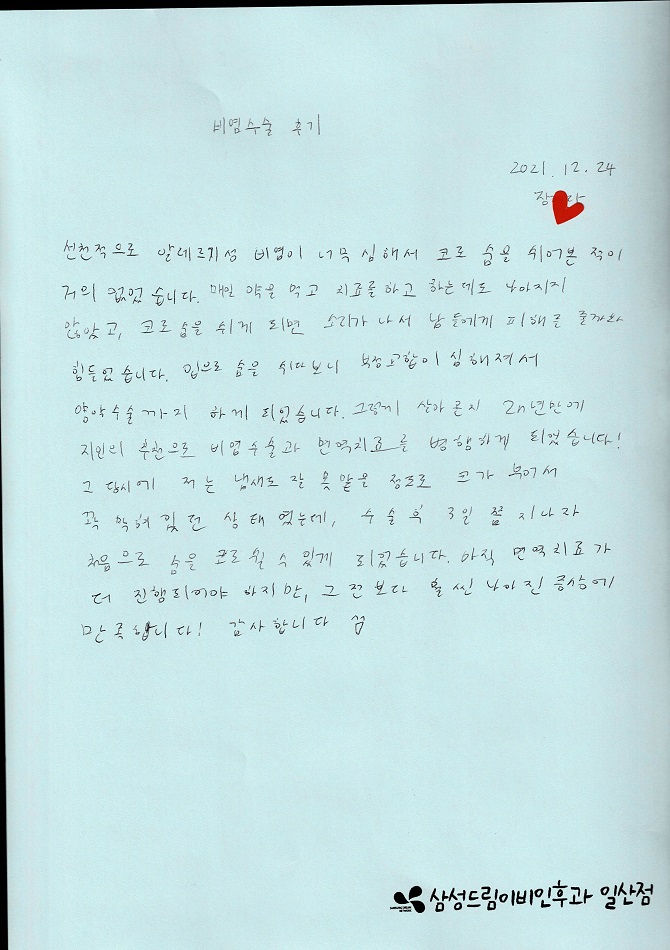 비염수술 후기
2021. 12. 24
장
선천적으로 알레르기성 비염이 너무 심해서 코로 숨을 쉬어본 적이
거의 없었습니다. 매일 약을 먹고 치료를 하고 하는데도 나아지지
않았고, 코로 숨을 쉬게 되면 소리가 나서 남들에게 피해를 줄까봐
힘들었습니다. 입으로 숨을 쉬다보니 부정교합이 심해져서
양악수술까지 하게 되었습니다. 그렇게 살아온지 2n년만에
지인의 추천으로 비염수술과 면역치료를 병행하게 되었습니다!
그 당시에 저는 냄새도 잘 못맡을 정도로 코가 부어서
꽉 막혀있던 상태였는데, 수술 후 3일 쯤 지나자
처음으로 숨을 코로 쉴 수 있게 되었습니다. 아직 면역치료가
더 진행되어야 하지만, 그 전보다 훨씬 나아진 증상에
만족합니다! 감사합니다
삼성드림이비인후과 일산점